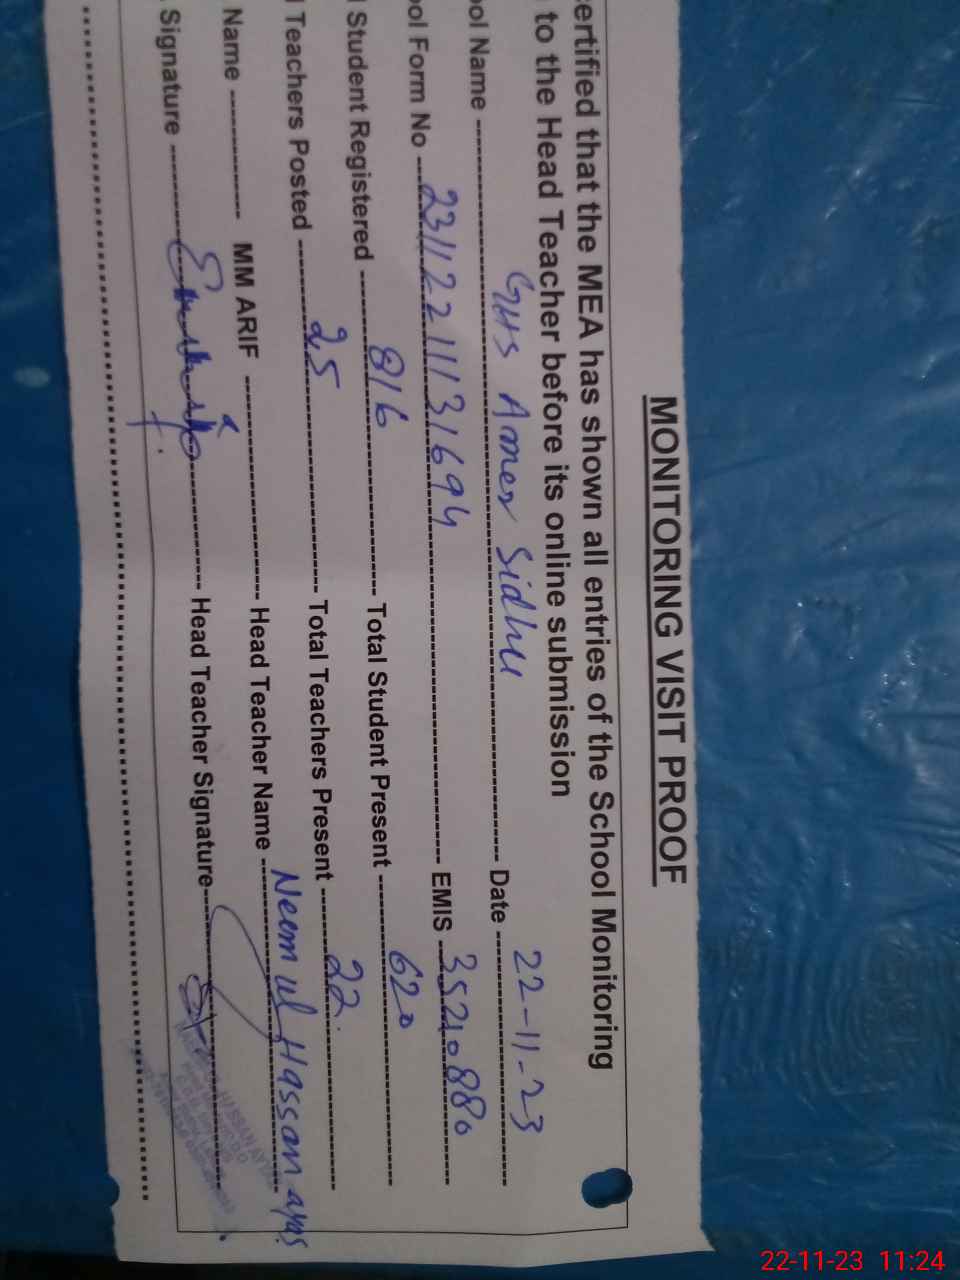 MONITORING VISIT PROOF
ertified that the MEA has shown all entries of the School Monitoring
to the Head Teacher before its online submission
ool Name GHS Ameer Sidhu Date 22-11-23
ool Form No 23112211131694 EMIS 35210880
l Student Registered 816 Total Student Present 620
l Teachers Posted 25 Total Teachers Present 22
Name MM ARIF Head Teacher Name Neem ul Hassan
Signature Head Teacher Signature
22-11-23 11:24